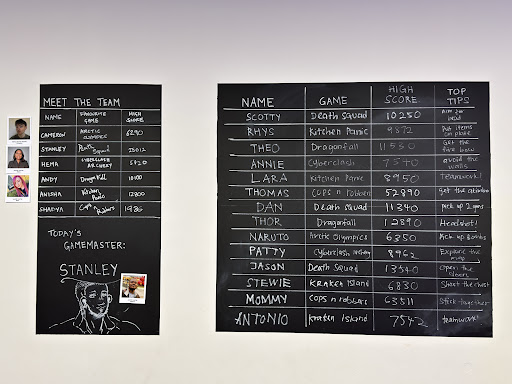 MEET THE TEAM
NAME FAVOURITE GAME HIGH SCORE
CAMERON ARCTIC OLYMPICS 6290
STANLEY Death Squad
HEMA CYBERCLASH ARCHERY
ANDY
ANISHA Kraken
SHADYA Cops n Robbers 1986
TODAY'S
GAMEMASTER:
STANLEY
NAME GAME HIGH SCORE TOP TIPS
SCOTTY Death Squad 10250 Aim for head
RHYS Kitchen Panic 9372 Put items on plate
THEO Dragonfall 11550 Get the fire
ANNIE Cyberclash 7540 avoid the walls
LARA Kitchen Panic 8950 Teamwork!
THOMAS COPS n robbers 52890 get the
DAN Death Squad 11340 pick up 2 guns
THOR Dragonfall 12890 Headshot!
NARUTO Arctic Olympics 6350 Pick up Bombs
PATTY Cyberclash Archery 8962 Explore the map
JASON Death Squad 13540 Open the
STEWIE Kraken Island 6830 Shoot the chest
MOMMY Cops n robbers 63511 Stick together
ANTONIO Kraken Island 7542 teamwork!